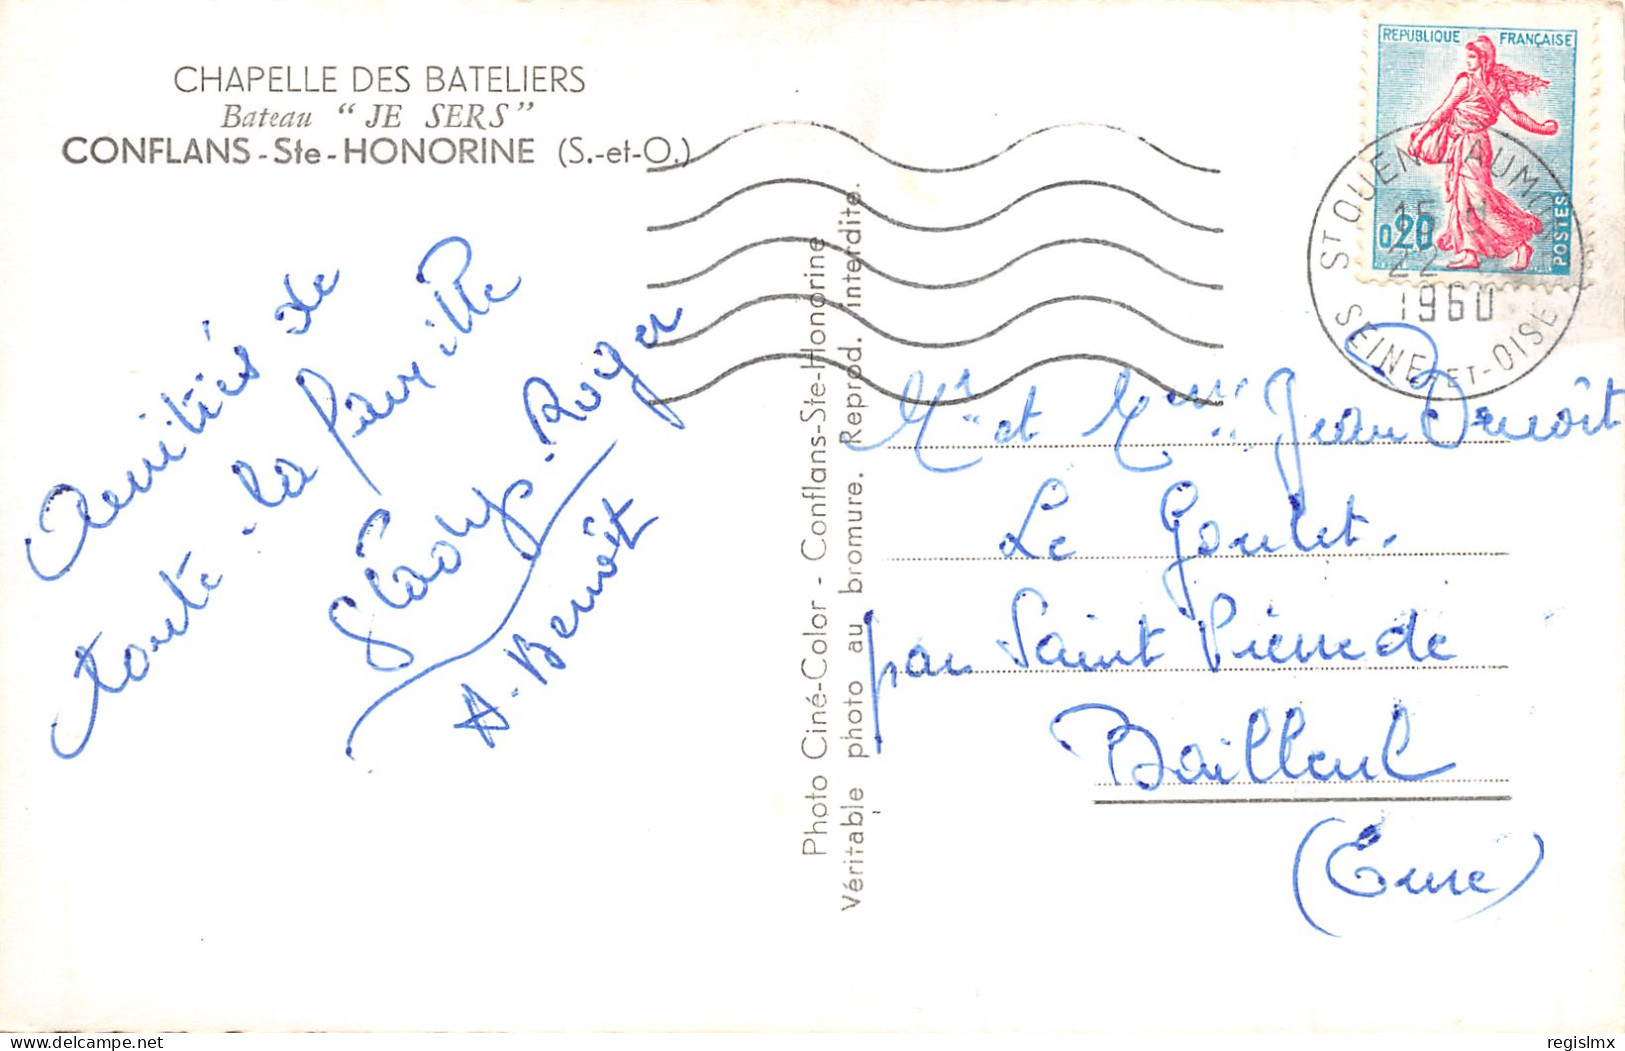 CHAPELLE DES BATELIERS
Bateau "JE SERS"
CONFLANS-Ste-HONORINE (S.-et-O.)
Amitiés de
toute la famille
Gladys. Roger
A. Benoît
Photo Ciné-Color - Conflans-Ste-Honorine
Véritable photo au bromure. Reprod. interdite.
REPUBLIQUE FRANÇAISE
0,20
POSTES
ST OUEN L'AUMONE
22
1960
SEINE-ET-OISE
Mr et Mme Jean Benoît
Le Goulet.
par Saint Pierre de
Bailleul
(Eure)
collection-jfm.fr
regislmx